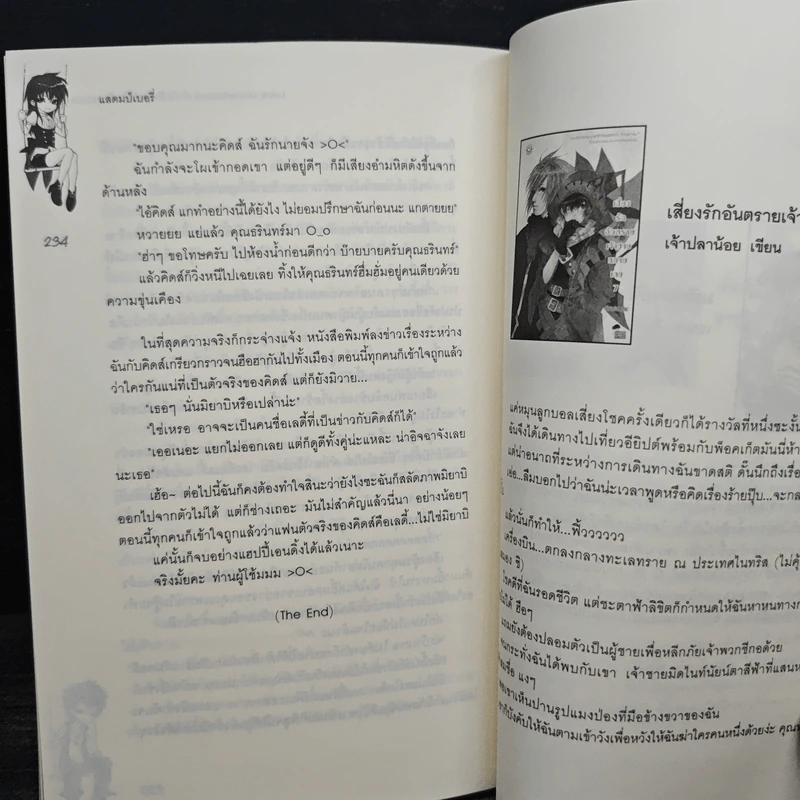 แสตมป์เบอรี่
"ขอบคุณมากนะคิดส์ ฉันรักนายจัง >O<"
ฉันกำลังจะโผเข้ากอดเขา แต่อยู่ดีๆ ก็มีเสียงอำมหิตดังขึ้นจาก
ด้านหลัง
"ไอ้คิดส์ แกทำอย่างนี้ได้ยังไง ไม่ยอมปรึกษาฉันก่อนนะ แกตายยย"
หวายยย แย่แล้ว คุณธรินทร์มา O_o
234
"ฮ่าๆ ขอโทษครับ ไปห้องน้ำก่อนดีกว่า บ๊ายบายครับคุณธรินทร์"
แล้วคิดส์ก็วิ่งหนีไปเฉยเลย ทิ้งให้คุณธรินทร์ฮึ่มฮั่มอยู่คนเดียวด้วย
ความขุ่นเคือง
ในที่สุดความจริงก็กระจ่างแจ้ง หนังสือพิมพ์ลงข่าวเรื่องระหว่าง
ฉันกับคิดส์เกรียวกราวจนฮือฮากันไปทั้งเมือง ตอนนี้ทุกคนก็เข้าใจถูกแล้ว
ว่าใครกันแน่ที่เป็นตัวจริงของคิดส์ แต่ก็ยังมิวาย...
"เธอๆ นั่นมิยาบิหรือเปล่าน่ะ"
"ใช่เหรอ อาจจะเป็นคนชื่อเลดี้ที่เป็นข่าวกับคิดส์ก็ได้"
"เออเนอะ แยกไม่ออกเลย แต่ก็ดูดีทั้งคู่นะแหละ น่าอิจฉาจังเลย
นะเธอ"
เฮ้อ~ ต่อไปนี้ฉันก็คงต้องทำใจสินะว่ายังไงซะฉันก็สลัดภาพมิยาบิ
ออกไปจากตัวไม่ได้ แต่ก็ช่างเถอะ มันไม่สำคัญแล้วนี่นา อย่างน้อยๆ
ตอนนี้ทุกคนก็เข้าใจถูกแล้วว่าแฟนตัวจริงของคิดส์คือเลดี้...ไม่ใช่มิยาบิ
แค่นั้นก็จบอย่างแฮปปี้เอนดิ้งได้แล้วเนาะ
จริงมั้ยคะ ท่านผู้โช้มมม >O<
(The End)
เสี่ยงรักอันตรายเจ้า
เจ้าปลาน้อย เขียน
แค่หมุนลูกบอลเสี่ยงโชคครั้งเดียวก็ได้รางวัลที่หนึ่งซะงั้น
ฉันจึงได้เดินทางไปเที่ยวอียิปต์พร้อมกับพ็อคเก็ตมันนี่ห้า
แต่น่าอนาถที่ระหว่างการเดินทางฉันขาดสติ ดั๊นนึกถึงเรื่อง
เอ่อ...ลืมบอกไปว่าฉันน่ะเวลาพูดหรือคิดเรื่องร้ายปุ๊บ...จะกล
แล้วนั่นก็ทำให้...ฟิ้วววววว
เครื่องบิน...ตกลงกลางทะเลทราย ณ ประเทศไนทริส (ไม่คุ้
โชคดีที่ฉันรอดชีวิต แต่ชะตาฟ้าลิขิตก็กำหนดให้ฉันหาหนทางก
ไม่ได้ ฮือๆ
แถมยังต้องปลอมตัวเป็นผู้ชายเพื่อหลีกภัยเจ้าพวกชีกอด้วย
กระทั่งฉันได้พบกับเขา เจ้าชายมิดไนท์นัยน์ตาสีฟ้าที่แสนห
แงๆ
เขาเห็นปานรูปแมงป่องที่มือข้างขวาของฉัน
ก็บังคับให้ฉันตามเข้าวังเพื่อหวังให้ฉันฆ่าใครคนหนึ่งด้วยง่ะ คุณ